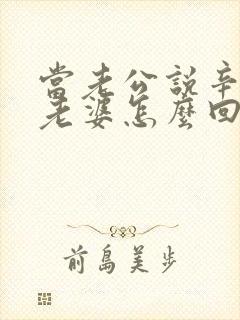 當老公說辛
老婆怎麼回
前島美步